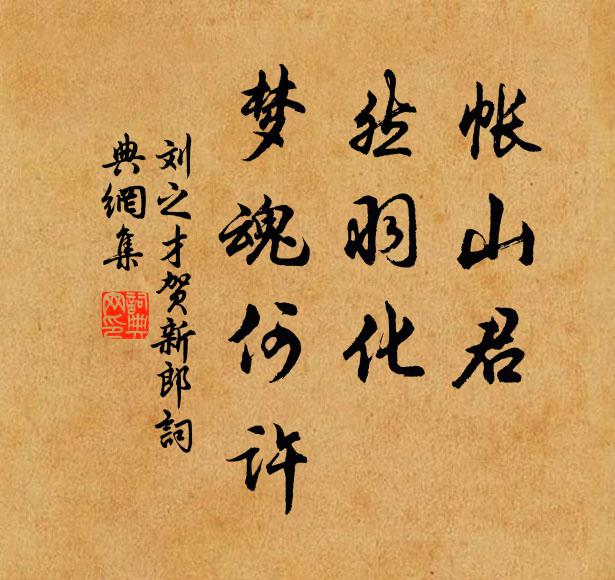 帐山君
然羽化
梦魂何许
刘之才贺新郎詞
典網集
詞典网印